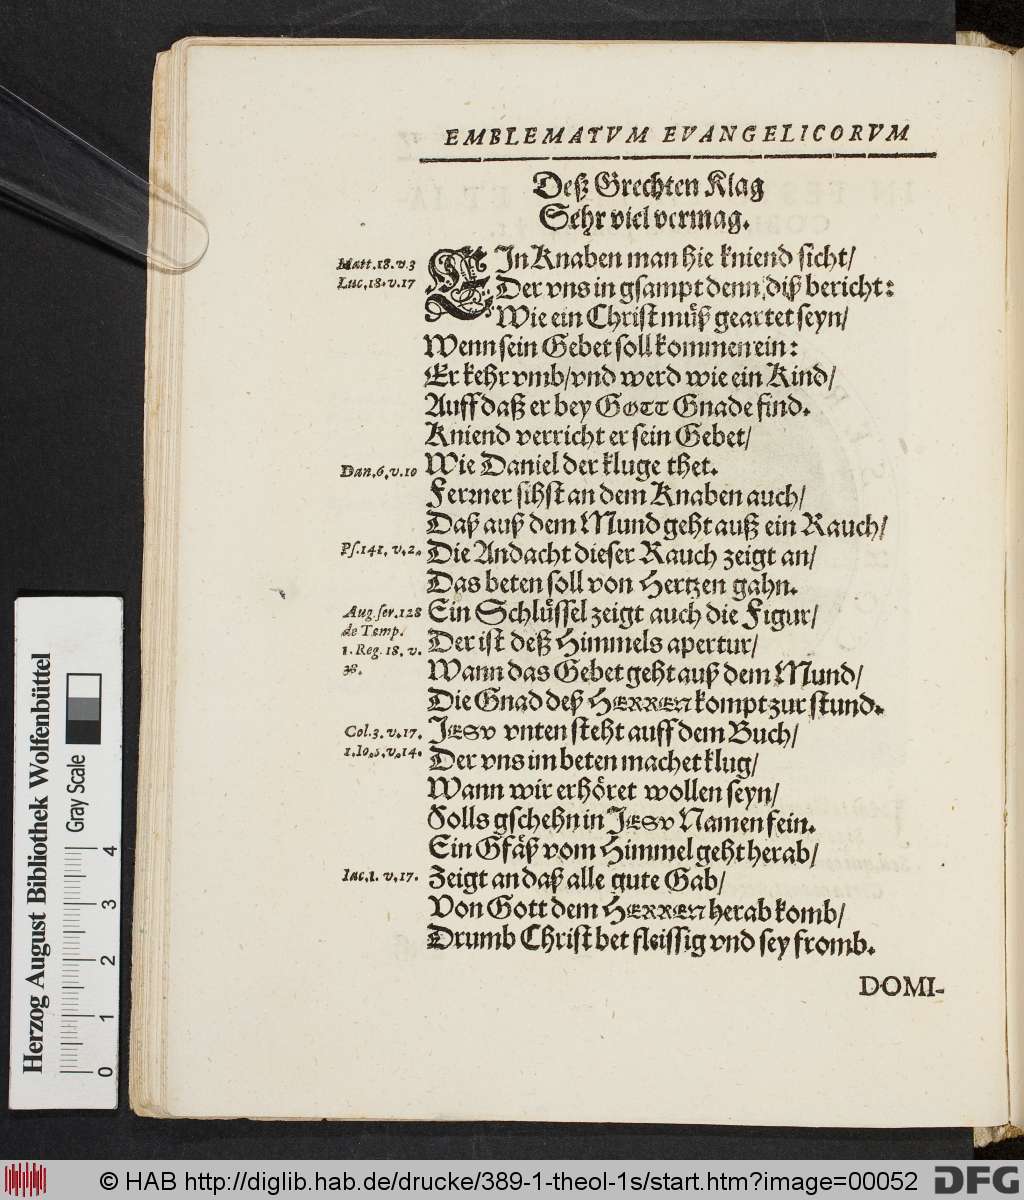 EMBLEMATVM EVANGELICORVM
Deß Grechten Klag
Sehr viel vermag.
Matt.18.v.3
Luc.18.v.17
EIn Knaben man hie kniend sicht/
Der vns in gsampt denn diß bericht:
Wie ein Christ muͤß geartet seyn/
Wenn sein Gebet soll kommen ein:
Er kehr vmb/vnd werd wie ein Kind/
Auff daß er bey GOTT Gnade find.
Kniend verricht er sein Gebet/
Dan.6.v.10
Wie Daniel der kluge thet.
Ferꝛner sihst an dem Knaben auch/
Daß auß dem Mund geht auß ein Rauch/
Ps.141.v.2.
Die Andacht dieser Rauch zeigt an/
Das beten soll von Hertzen gahn.
Aug.ser.128
de Temp.
1.Reg.18.v.
38.
Ein Schluͤssel zeigt auch die Figur/
Der ist deß Himmels apertur/
Wann das Gebet geht auß dem Mund/
Die Gnad deß HERREN kompt zur stund.
Col.3.v.17.
1.Io.5.v.14.
JESV vnten steht auff dem Buch/
Der vns im beten machet klug/
Wann wir erhoͤret wollen seyn/
Solls gschehn in JESV Namen fein.
Ein Gfaͤß vom Himmel geht herab/
Iac.1.v.17.
Zeigt an daß alle gute Gab/
Von Gott dem HERREN herab komb/
Drumb Christ bet fleissig vnd sey fromb.
DOMI-
Herzog August Bibliothek Wolfenbüttel
Gray Scale
0 1 2 3 4
© HAB http://diglib.hab.de/drucke/389-1-theol-1s/start.htm?image=00052
DFG